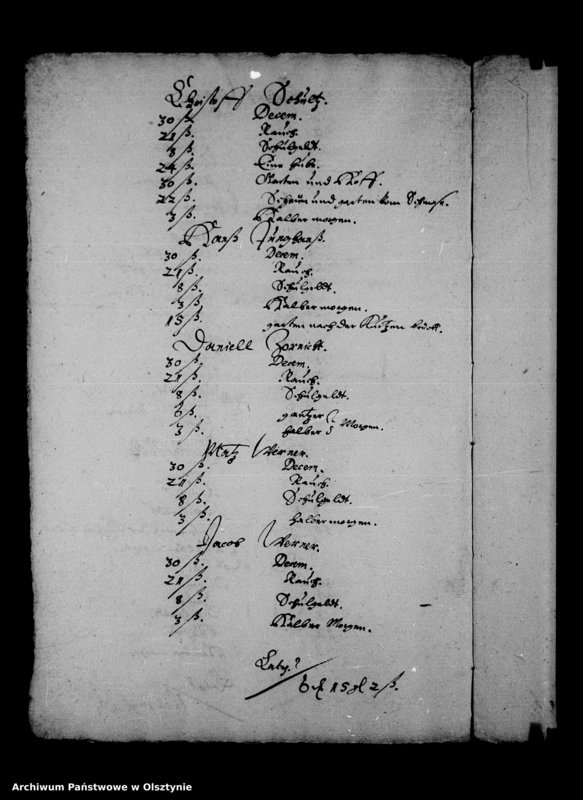 Christoff Schultz.
30 ß. Decem.
21 ß. Rauch.
8 ß. Schulgeldt.
24 ß. Eine hube.
30 ß. Garten und Hoff.
22 ß. Scheun und garten vom
3 ß. Halber morgen.
Hanß Junghanß.
30 ß. Decem.
21 ß. Rauch.
8 ß. Schulgeldt.
3 ß. Halber morgen.
15 ß. garten nach der
Daniell Zornick.
30 ß. Decem.
21 ß. Rauch.
8 ß. Schulgeldt.
6 ß. gantzer
3 ß. halber Morgen.
Matz Werner.
30 ß. Decem.
21 ß. Rauch.
8 ß. Schulgeldt.
3 ß. halber morgen.
Jacob Werner.
30 ß. Decem.
21 ß. Rauch.
8 ß. Schulgeldt.
3 ß. Halber Morgen.
Laty.
15 2 ß.
Archiwum Państwowe w Olsztynie